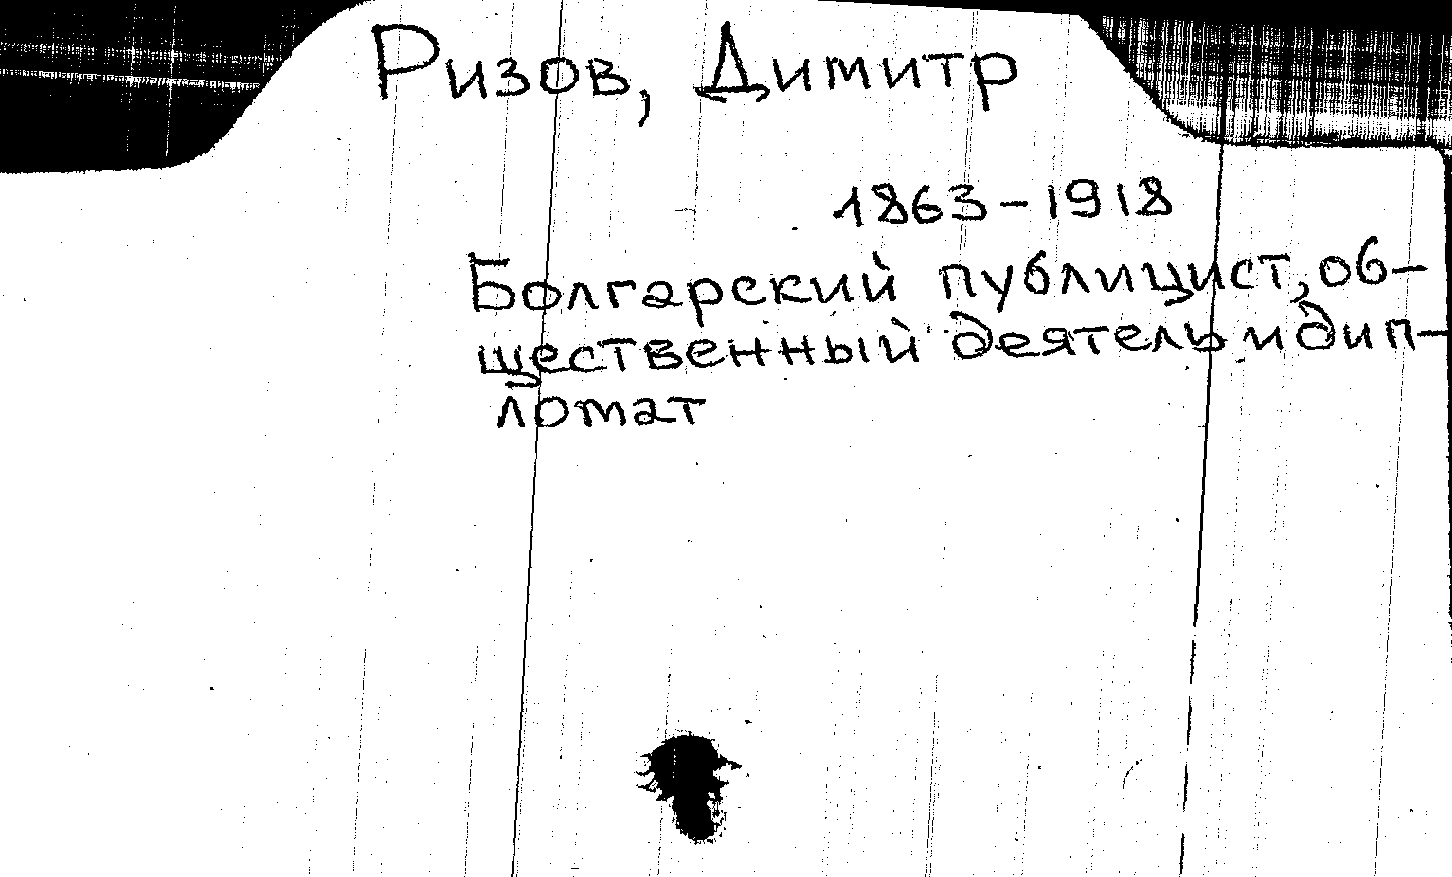 Ризов, Димитр
1863-1918
Болгарский публицист, об-
щественный деятель и дип-
ломат